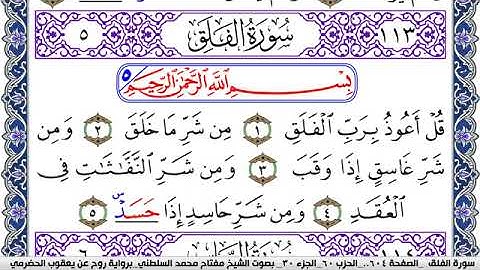 ١١٣ سُورَةُ الْفَلَقِ ٥
بِسْمِ اللَّهِ الرَّحْمَٰنِ الرَّحِيمِ ٥
قُلْ أَعُوذُ بِرَبِّ الْفَلَقِ ١ مِن شَرِّ مَا خَلَقَ ٢ وَمِن
شَرِّ غَاسِقٍ إِذَا وَقَبَ ٣ وَمِن شَرِّ النَّفَّاثَاتِ فِي
الْعُقَدِ ٤ وَمِن شَرِّ حَاسِدٍ إِذَا حَسَدَ ٥
١١٤ سُورَةُ النَّاسِ ٦
سورة الفلق _ الصفحة ٦٠٤ _ الحزب ٦٠_ الجزء ٣٠_ بصوت الشيخ مفتاح محمد السلطني_ برواية روح عن يعقوب الحضرمي